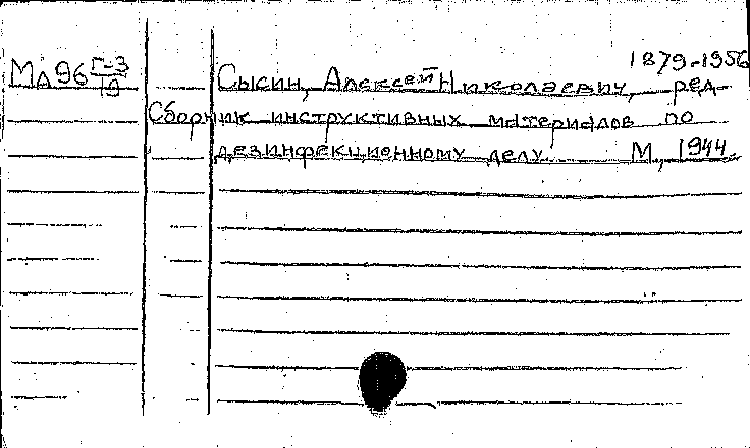 1879-1956
Мд96 Г-3/19 Сысин, Алексей Николаевич, ред-
Сборник инструктивных материалов по
дезинфекционному делу. М, 1944.